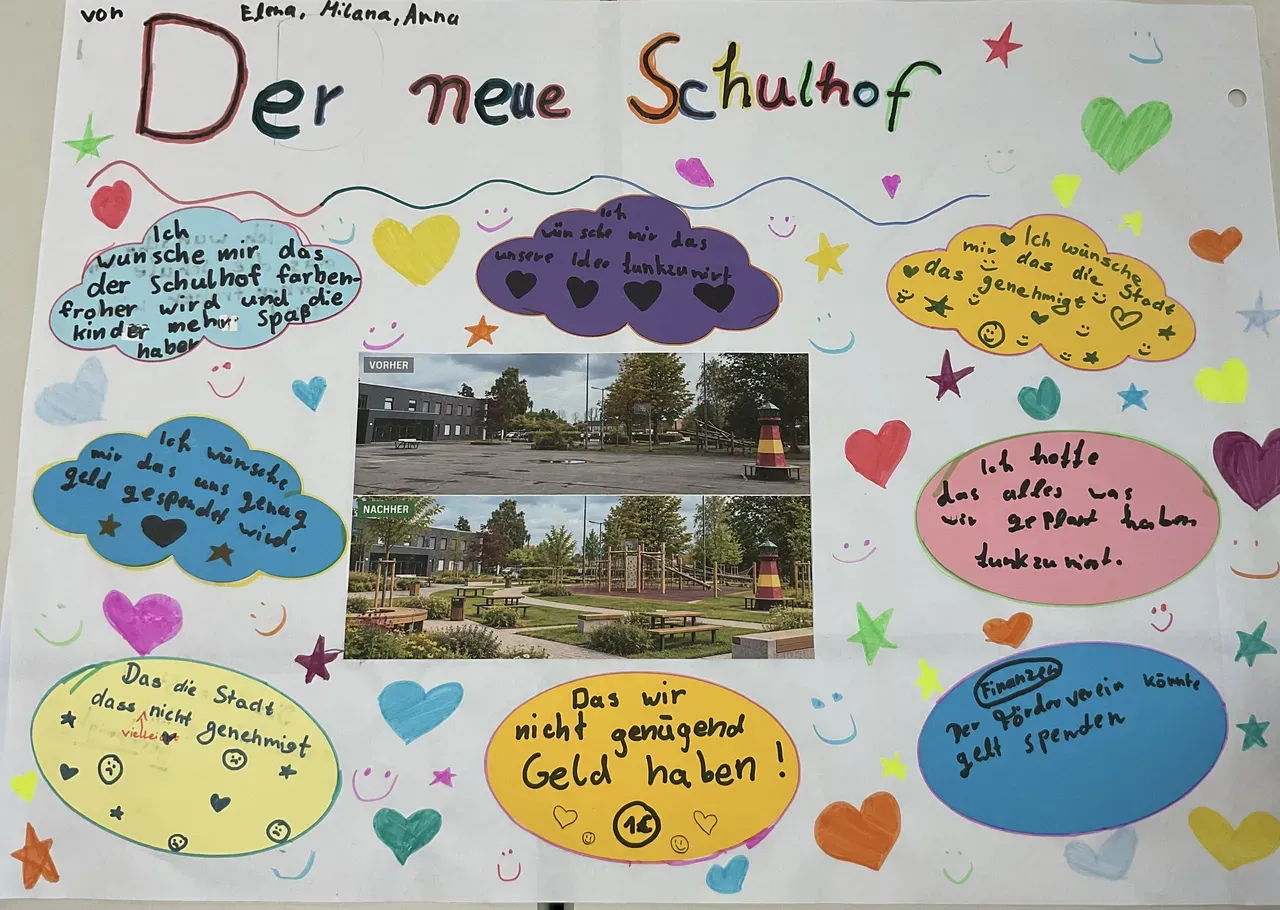 von Elena, Milana, Anna
Der neue Schulhof
Ich
wünsche mir das
der Schulhof farben-
froher wird und die
kinder mehr Spaß
haben
Ich
wünsche mir das
unsere Idee funkzunirt
Ich wünsche
mir das die Stadt
das genehmigt
VORHER
NACHHER
Ich wünsche
mir das uns genug
geld gespendet wird.
Ich hoffe
das alles was
wir geplant haben
funkzunirt.
Das die Stadt
dass nicht genehmigt
vielleicht
Das wir
nicht genügend
Geld haben!
1€
Finanzen
Der Förderverein könnte
gelt spenden